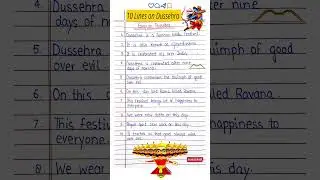 10 Lines on Dussehra
Essay on Dussehra
1. Dussehra is a famous Hindu festival.
2. It is also known as
3. It is celebrated all over India.
4. Dussehra is celebrated after nine
days of navratri.
5. Dussehra celebrates the triumph of good
over evil.
6. On this day Lord Rama killed Ravana.
7. This festival brings lot of happiness to
everyone.
8. We wear new clothes on this day.
9. People on this day.
10. It teaches us that good always wins
over evil.
4. Dussehra
days of n
5. Dussehra
over evil.
6. On this
7. This festi
everyone.
8. We wear
nine
riumph of good
ed Ravana.
happiness to
day.